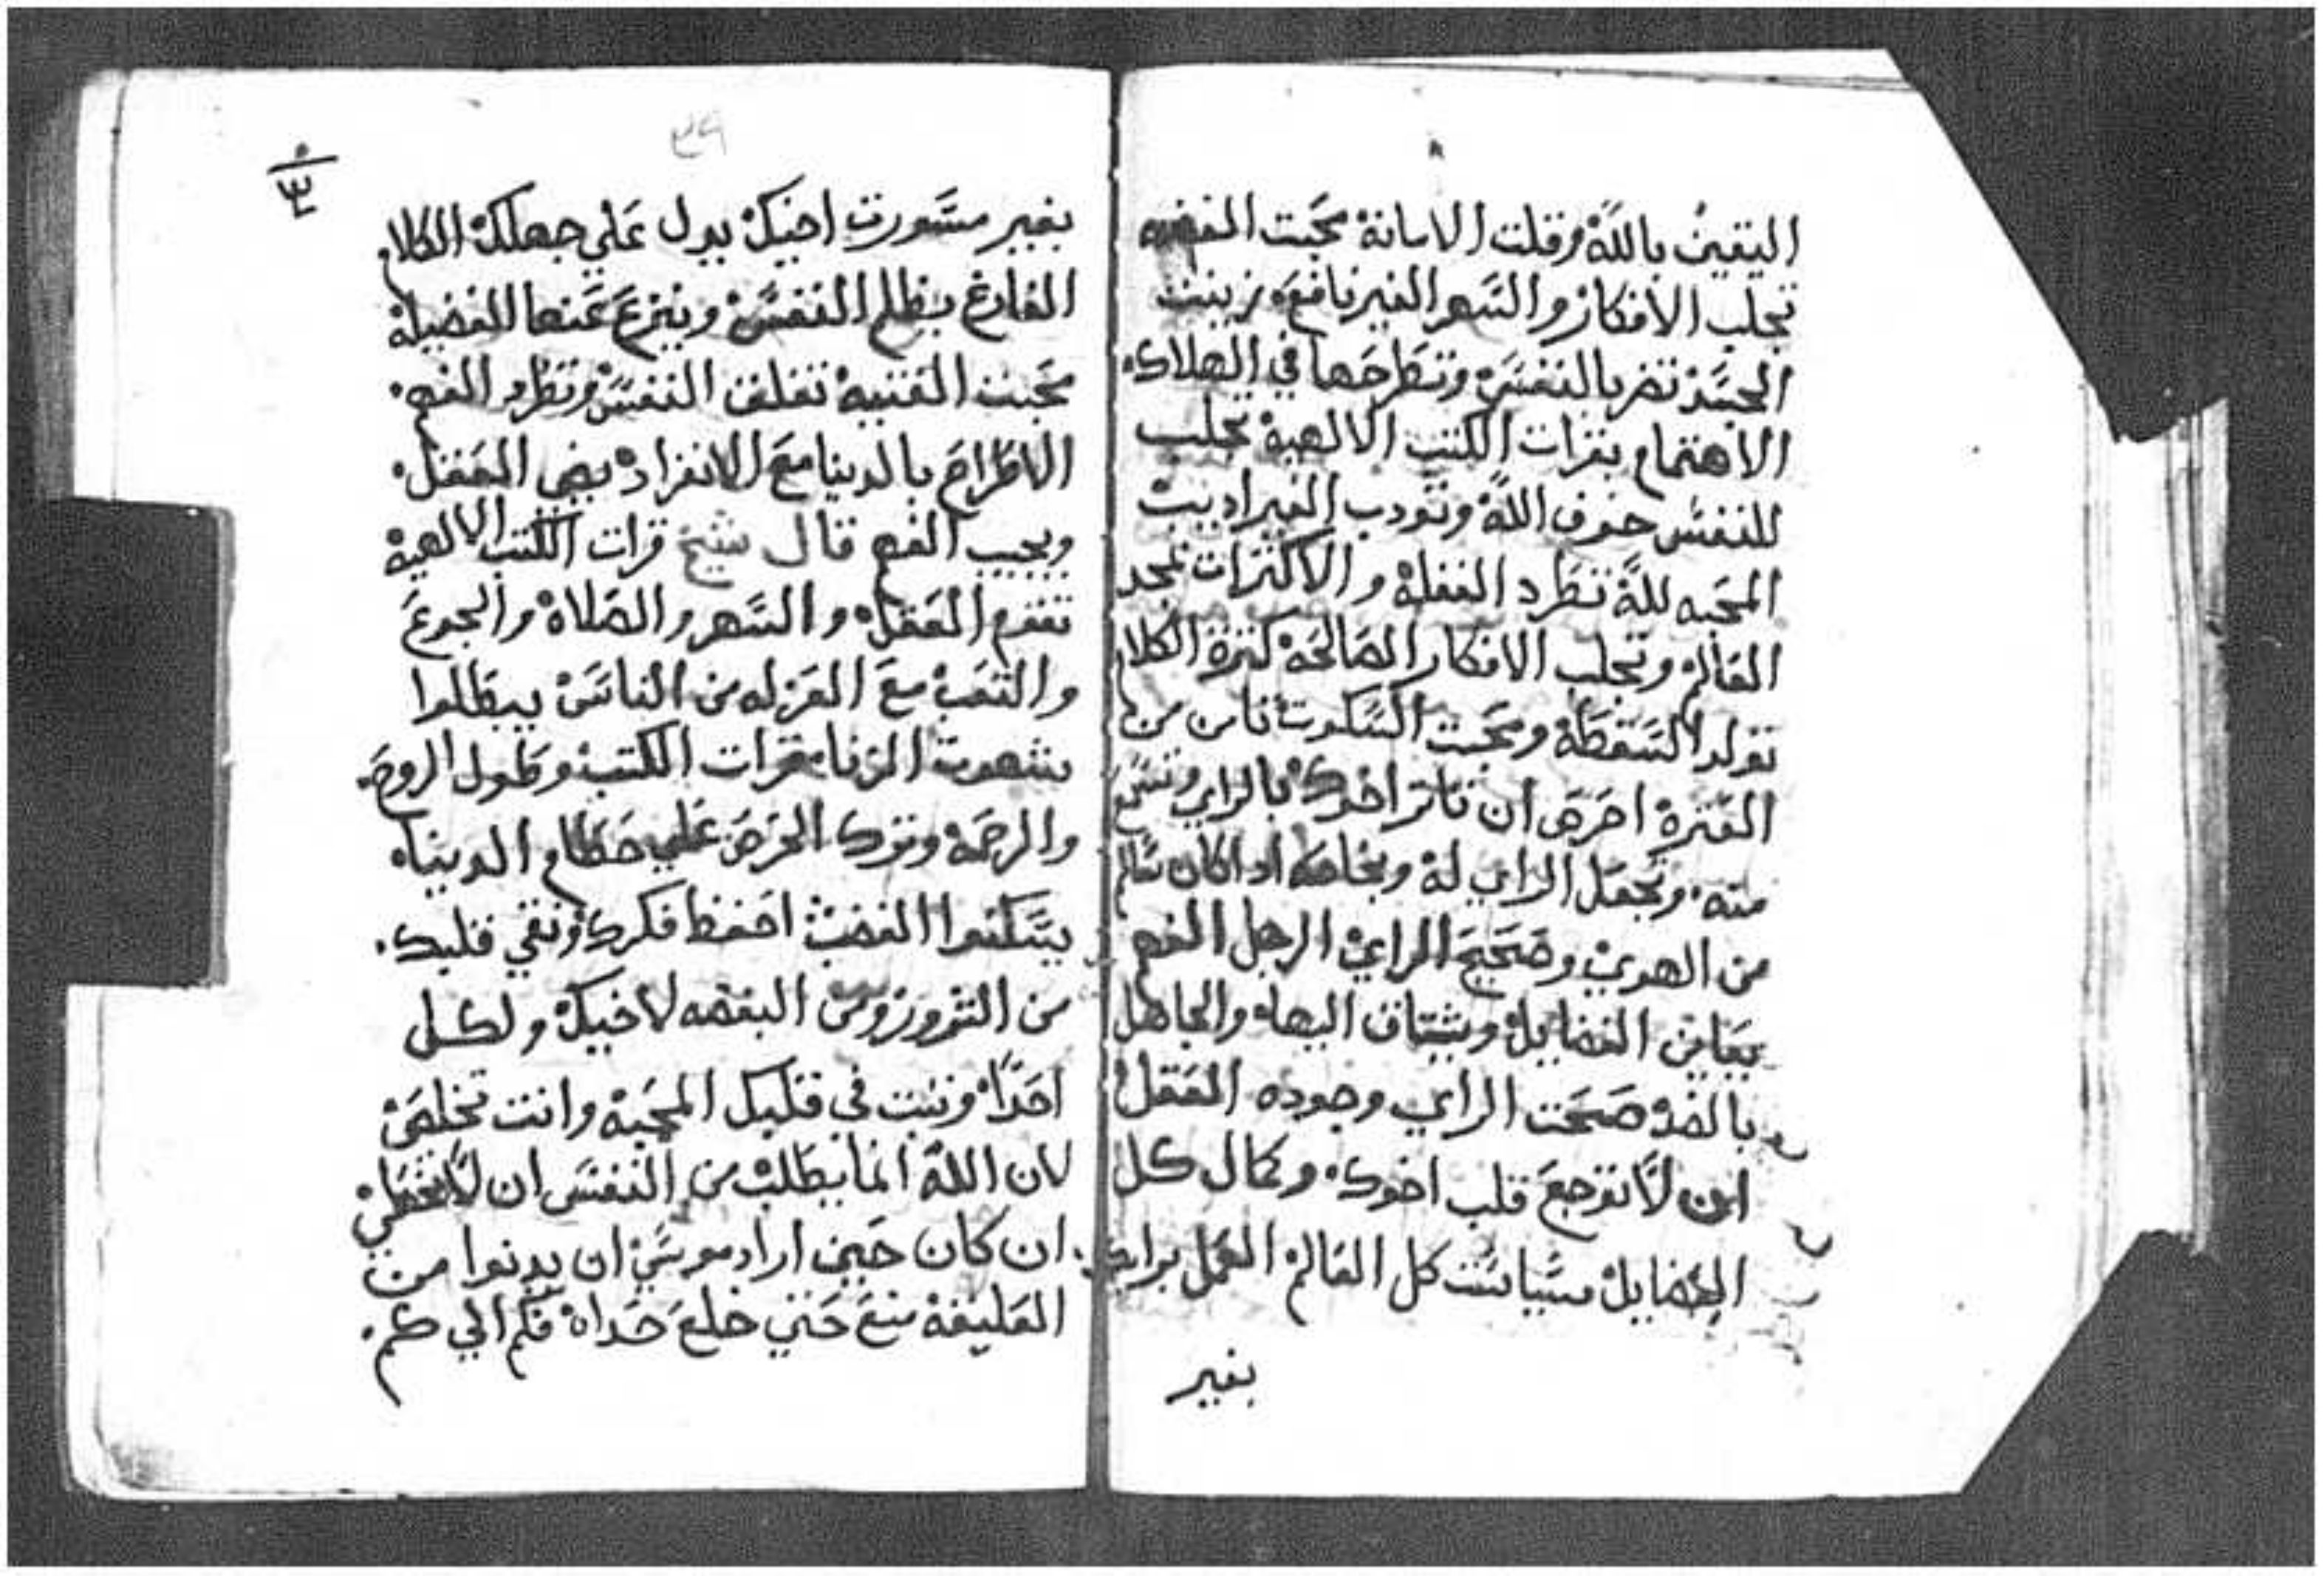 اليقين بالله وقلت الامانة محبت الفضه
تجلب الافكار والسهر الغير نافعه زينت
الجسد تضر بالنفس وتطرحها في الهلاك.
الاهتمام بقرات الكتب الالهية يجلب
للنفس خوف الله وتودب الغير اديب
المحبه لله تطرد الغفلة والاكترات بمجد
العالم وتجلب الافكار الصالحة كثرة الكلام
تولد السقطة ومحبت السكوت تامن من
الفترة احرص ان تاتر اخوك بالراي وتسمع
منه. وتجعل الراي له وبخاصه اذا كان سالم
من الهوي وصحيح الراي الرجل الفهم
يعاين الفضايل ويشتاق اليها. والجاهل
بالضد صحت الراي وجوده العقل
ان لا توجع قلب اخوك. وكمال كل
الفضايل سياست كل العالم العمل برايك
بغير
٣٩
٣٠
بغير مشورت اخيك يدل علي جهلك الكلام
الفارغ يظلم النفس وينزع عنها الفضيلة
محبت القنيه تقلق النفس وتطرد الفهم.
الاطراح بالدنيا مع الانفراد يضي العقل.
ويجيب الفهم قال شيخ قرات الكتب الالهية
تقوم العقل. والسهر والصلاة والجوع
والتعب مع العزله من الناس يبطلوا
شهوت الزنا. قرات الكتب وطول الروح.
والرحمة وترك الحرص علي حطام الدنياه
يسكنوا الغضب احفظ فكرك ونقي قلبك.
من الشرور ومن البغضه لاخيك ولكل
احدا. وثبت في قلبك المحبة وانت تخلص
لان الله انما يطلب من النفس ان لا تخطي
ان كان حين اراد موسي ان يدنوا من
العليقة منع حتي خلع حداه فكم الي كم.